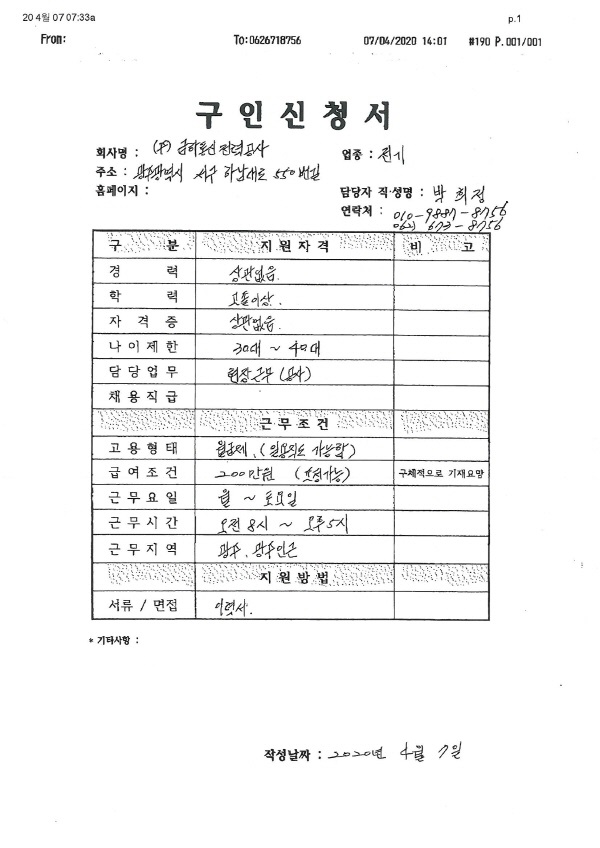 20 4월 07 07:33a p.1
From: To:0626718756 07/04/2020 14:01 #190 P.001/001
구인신청서
회사명 : (주) 전력공사 업종 : 전기
주소 : 광주광역시 서구 하남대로 550번길
홈페이지 : 담당자 직·성명 : 박희정
연락처 : 010-9887-8756
062) 673-8756
구 분 지원자격 비 고
경 력 상관없음.
학 력 고졸이상.
자 격 증 상관없음.
나이제한 30대 ~ 40대
담당업무 현장근무 (공사)
채용직급
근무조건
고용형태 월급제. (일용직도 가능함)
급여조건 200만원 (조정가능) 구체적으로 기재요망
근무요일 월 ~ 토요일
근무시간 오전 8시 ~ 오후 5시
근무지역 광주. 광주인근
지원방법
서류 / 면접 이력서.
* 기타사항 :
작성날짜 : 2020년 4월 7일